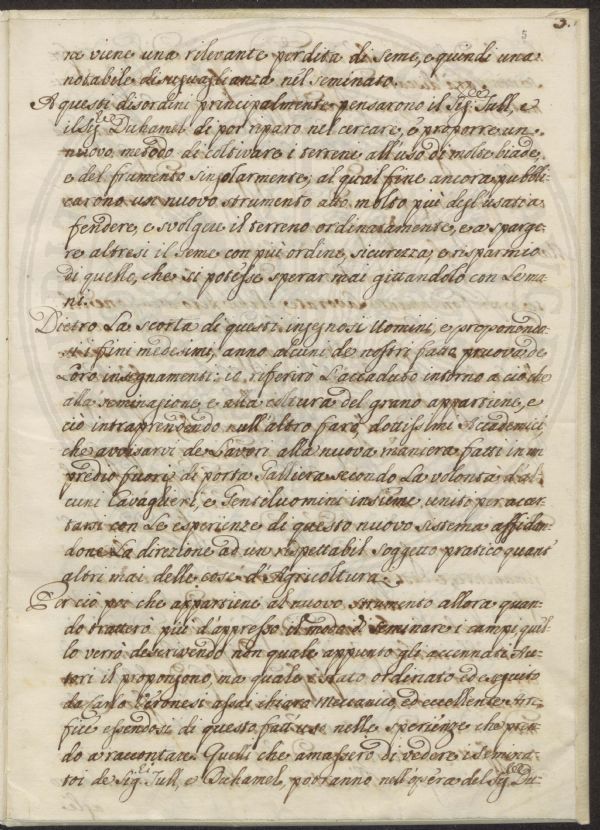 5
3.
ne viene una rilevante perdita di seme, e quindi una
notabile disuguaglianza nel seminato.
A questi disordini principalmente pensarono il Sig.re Tull, e
il Sig.re Duhamel di por riparo nel cercare, e proporre un
nuovo metodo di coltivare i terreni all'uso di molte biade,
e del framento singolarmente; al qual fine ancora pubbli-
carono un nuovo strumento atto molto più degl'usati a
fendere, e svolgere il terreno ordinatamente, e a sparge-
re altresì il seme con più ordine, sicurezza, e risparmio
di quello, che si potesse sperar mai gittandolo con le ma-
ni.
Dietro la scorta di questi ingegnosi Uomini, e proponendo-
si i fini medesimi, anno alcuni de nostri fatta pruova de
loro insegnamenti: io riferirò l'accaduto intorno a ciò che
alla seminazione, e alla coltura del grano appartiene, e
ciò intraprendendo null'altro farò, dottissimi Accademici,
che avvisarvi de lavori alla nuova maniera fatti in un
predio fuori di porta Galliera secondo la volontà d'al-
cuni Cavaglieri, e Gentiluomini insieme unito per accer-
tarsi con le esperienze di questo nuovo sistema affidan-
done la direzione ad un rispettabil soggetto pratico quant'
altri mai delle cose d'Agricoltura.
Per ciò poi che appartiene al nuovo strumento allora quan-
do tratterò più d'appresso il modo di seminare i campi quel-
lo verrò descrivendo non quale appunto gli accennati Au-
tori il propongono, ma quale è stato ordinato ed eseguito
da Carlo Veronesi assai chiaro Meccanico, ed eccellente Arte-
fice essendosi di questo fatto uso nelle sperienze che pren-
do a raccontare. Quelli che amassero di vedere i Semina-
toi de Sig.ri Tull, e Duhamel, potranno nell'opera del Sig.re Du-